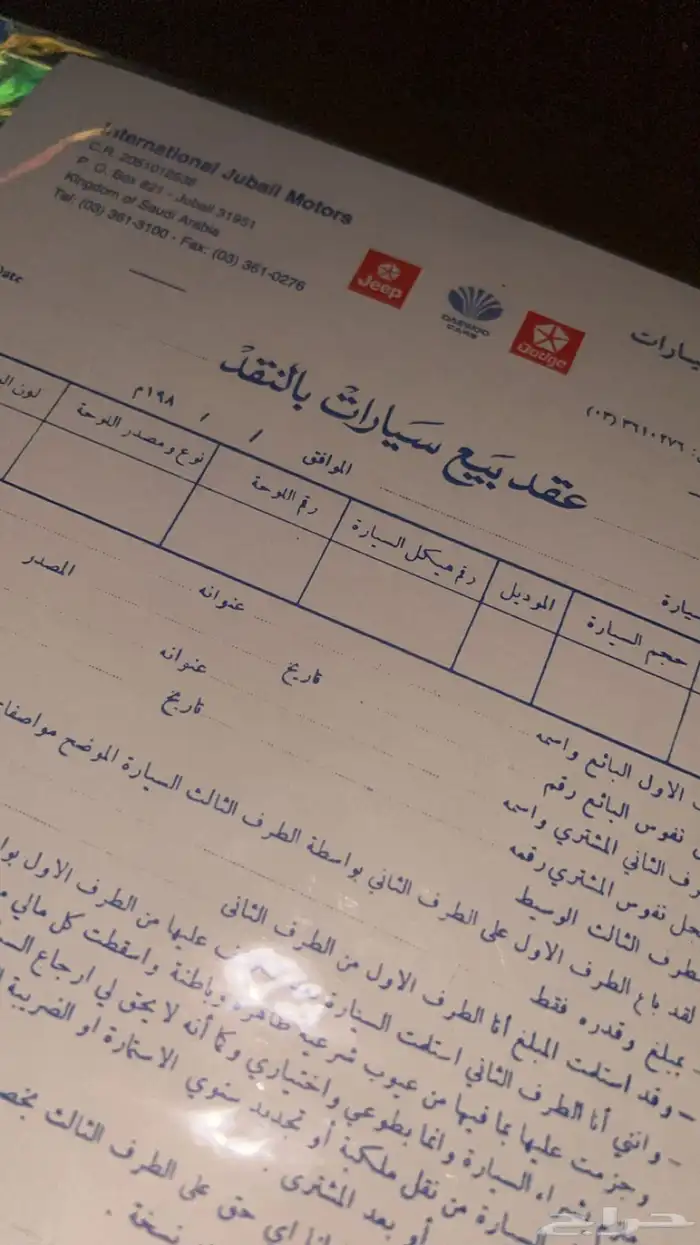 International Jubail Motors
C.R. 2051012536
P. O. Box 821 - Jubail 31951
Kingdom of Saudi Arabia
Tel: (03) 361-3100 - Fax: (03) 361-0276
Jeep
DAEWOO CARS
Dodge
٣٦١٠٢٧٦ (٠٣)
Date
عقد بيع سيارات بالنقد
الموافق / / ١٩٨م
حجم السيارة الموديل رقم هيكل السيارة رقم اللوحة نوع ومصدر اللوحة لون
الاول البائع واسمه عنوانه المصدر
نفوس البائع رقم تاريخ
الثاني المشتري واسمه عنوانه
نفوس المشتري رقمه تاريخ
الطرف الثالث الوسيط
لقد باع الطرف الاول على الطرف الثاني بواسطة الطرف الثالث السيارة الموضح
- بمبلغ وقدره فقط
- وقد استلمت المبلغ أنا الطرف الاول من الطرف الثاني
- وانني أنا الطرف الثاني استلمت السيارة عليها من الطرف الاول
وجزمت عليها بما فيها من عيوب شرعية ظاهرة وباطنة واسقطت كل مالي
السيارة وانما بطوعي واختياري وكما أنه لا يحق لي ارجاع
السيارة من نقل ملكية أو تجديد سنوي الاستمارة او الضريبة
أو بعد المشترى .
اي حق على الطرف الثالث
نسخة .
حراج